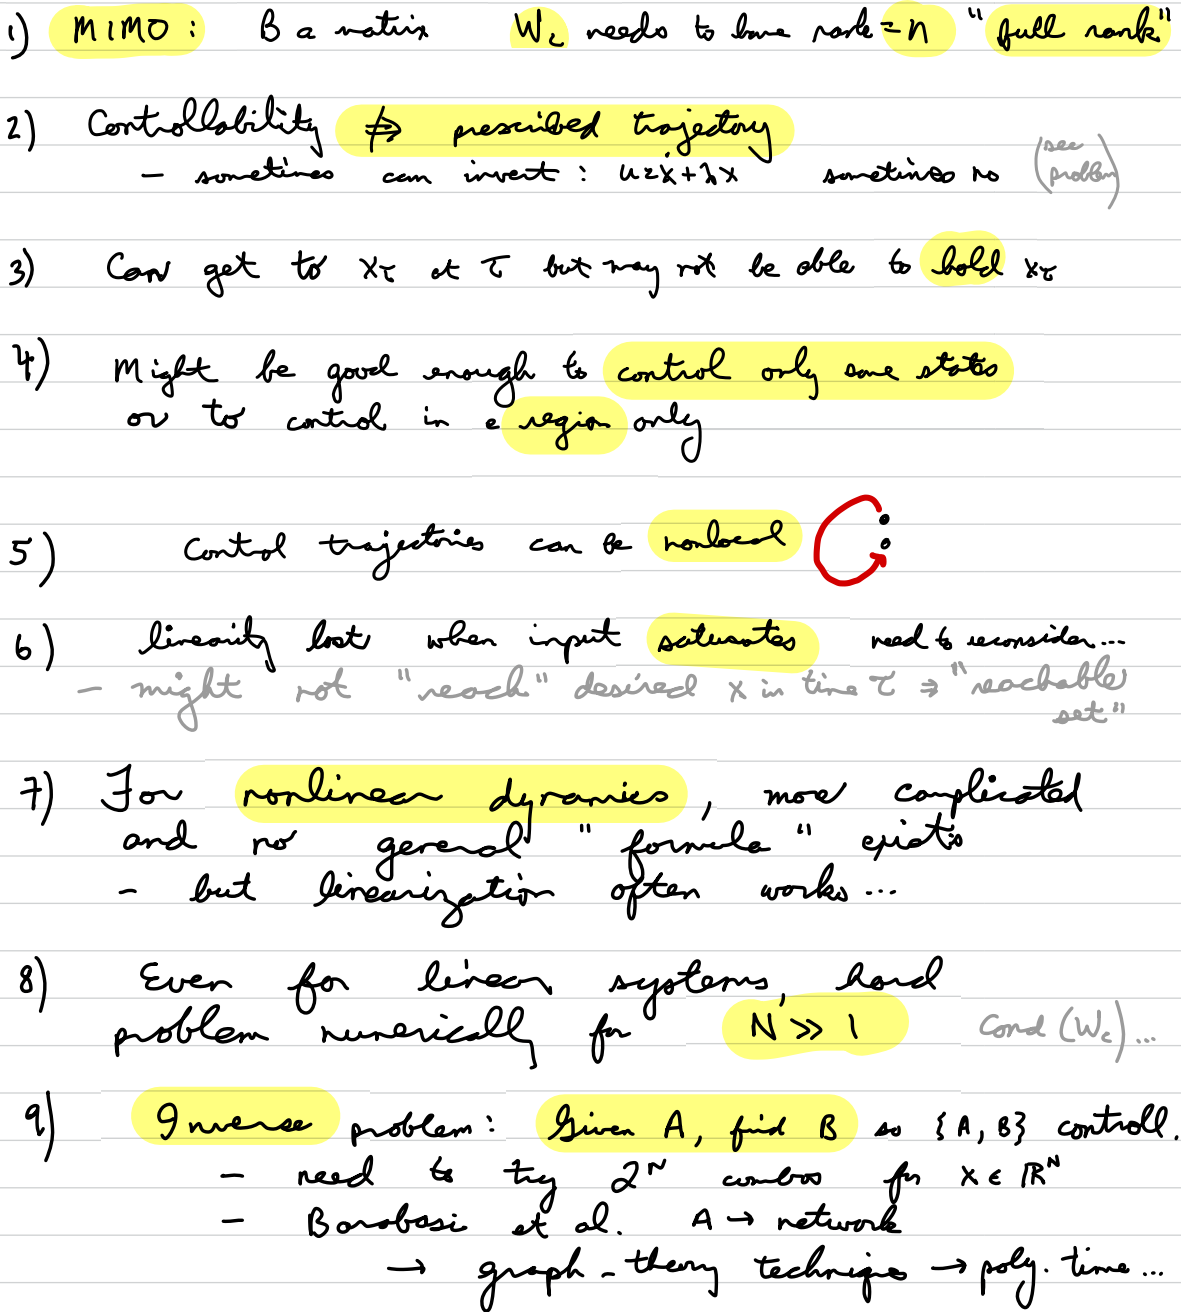 1) MIMO : B a matrix W_c needs to have rank = n "full rank"
2) Controllability ⇏ prescribed trajectory
- sometimes can invert : u = ẋ + λx sometimes no (see problem)
3) Can get to x_τ at τ but may not be able to hold x_τ
4) Might be good enough to control only some states
or to control in a region only
5) Control trajectories can be nonlocal
6) linearity lost when input saturates need to reconsider...
- might not "reach" desired x in time τ ⇒ "reachable
set"
7) For nonlinear dynamics, more complicated
and no general "formula" exists
- but linearization often works...
8) Even for linear systems, hard
problem numerically for N ≫ 1 Cond (W_c)...
9) Inverse problem: Given A, find B so {A, B} controll.
- need to try 2^N combos for x ∈ ℝ^N
- Barabasi et al. A → network
→ graph-theory techniques → poly. time...